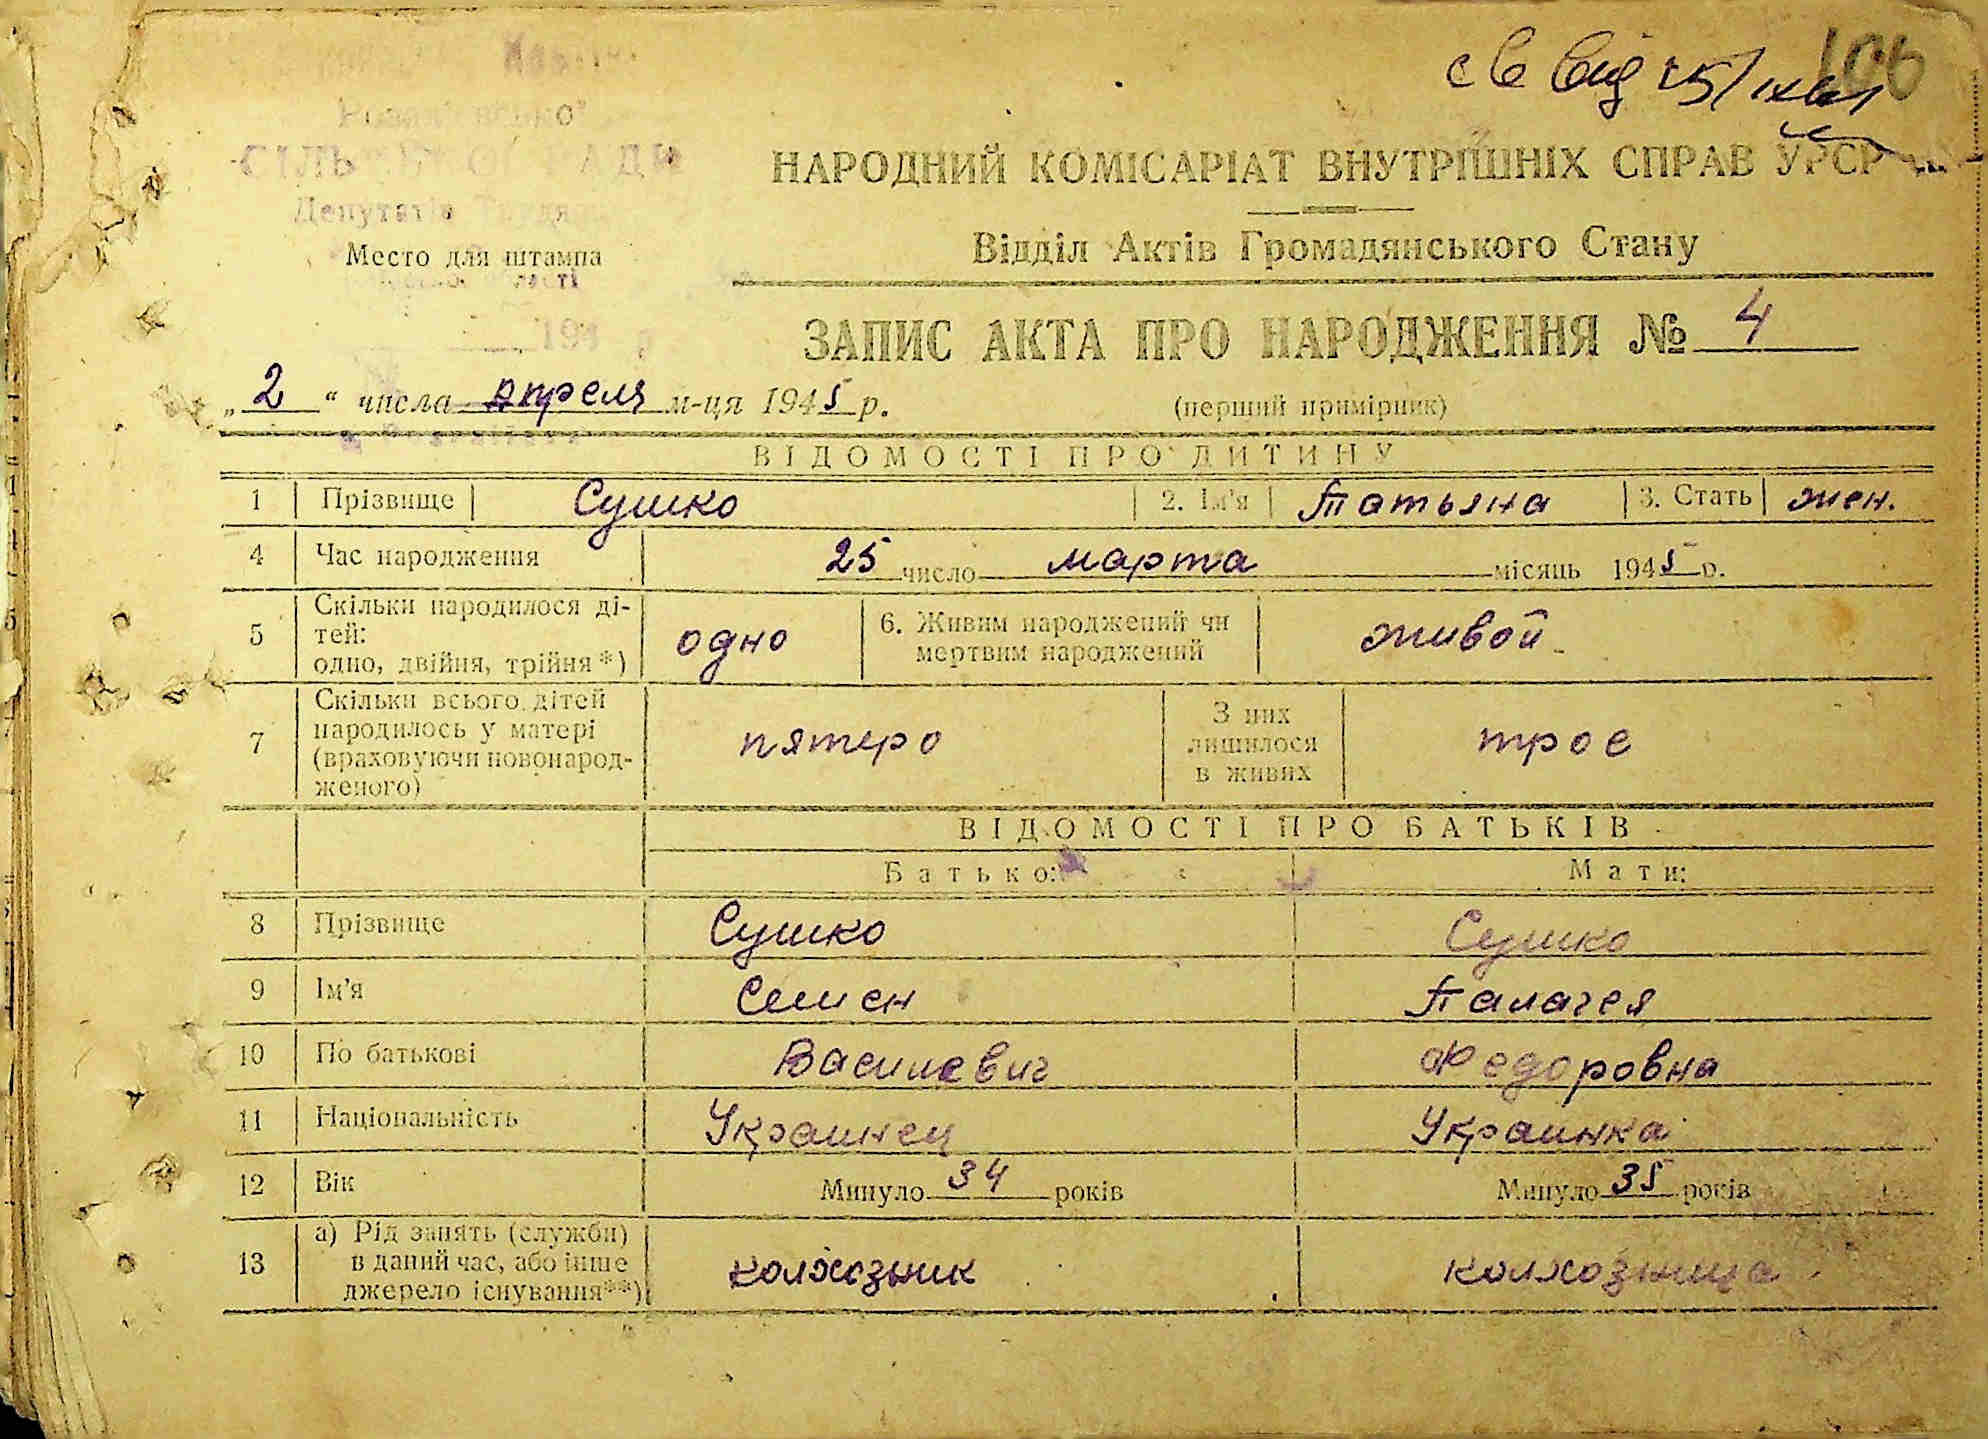 106
НАРОДНИЙ КОМІСАРІАТ ВНУТРІШНІХ СПРАВ УРСР
Відділ Актів Громадянського Стану
Депутатів
Место для штампа
ЗАПИС АКТА ПРО НАРОДЖЕННЯ № 4
„2“ числа апреля м-ця 1945 р.
(перший примірник)
ВІДОМОСТІ ПРО ДИТИНУ
1 Прізвище Сушко 2. Ім'я Татьяна 3. Стать жен.
4 Час народження 25 число марта місяць 1945 р.
5 Скільки народилося ді-
тей:
одно, двійня, трійня*) одно 6. Живим народжений чи
мертвим народжений живой
7 Скільки всього дітей
народилось у матері
(враховуючи новонарод-
женого) пятеро З них
лишилося
в живих трое
ВІДОМОСТІ ПРО БАТЬКІВ
Батько: Мати:
8 Прізвище Сушко Сушко
9 Ім'я Семен Палагея
10 По батькові Василевич Федоровна
11 Національність Украинец Украинка
12 Вік Минуло 34 років Минуло 35 років
13 а) Рід занять (служби)
в даний час, або інше
джерело існування**) колхозник колхозница